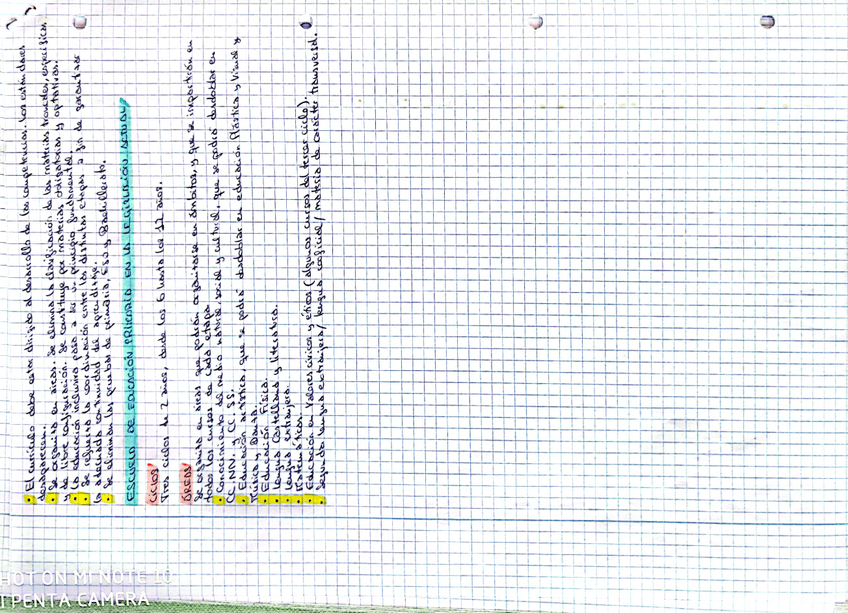 • El currículo debe estar dirigido al desarrollo de las competencias. Los estándares
desaparecen.
• Se organiza en áreas. Se elimina la clasificación de las materias troncales, específicas
y de libre configuración. Se constituye por materias obligatorias y optativas.
• La educación inclusiva pasa a ser un principio fundamental.
• Se refuerza la coordinación entre las distintas etapas a fin de garantizar
la adecuada continuidad del aprendizaje.
• Se eliminan las pruebas de primaria, ESO y Bachillerato.
ESCUELA DE EDUCACIÓN PRIMARIA EN LA LEGISLACIÓN ACTUAL
CICLOS
Tres ciclos de 2 años, desde los 6 hasta los 12 años.
ÁREAS
Se organiza en áreas que podrán organizarse en ámbitos, y que se impartirán en
todos los cursos de cada etapa.
• Conocimiento del medio natural, social y cultural, que se podrá desdoblar en
CC.NN. y CC.SS.
• Educación artística, que se podrá desdoblar en educación Plástica y Visual y
Música y Danza.
• Educación Física.
• Lengua Castellana y literatura.
• Lengua extranjera.
• Matemáticas.
• Educación en Valores cívicos y éticos (algunos cursos del tercer ciclo).
• Segunda lengua extranjera/ lengua cooficial/ materia de carácter transversal.
SHOT ON MI NOTE 10
PENTA CAMERA